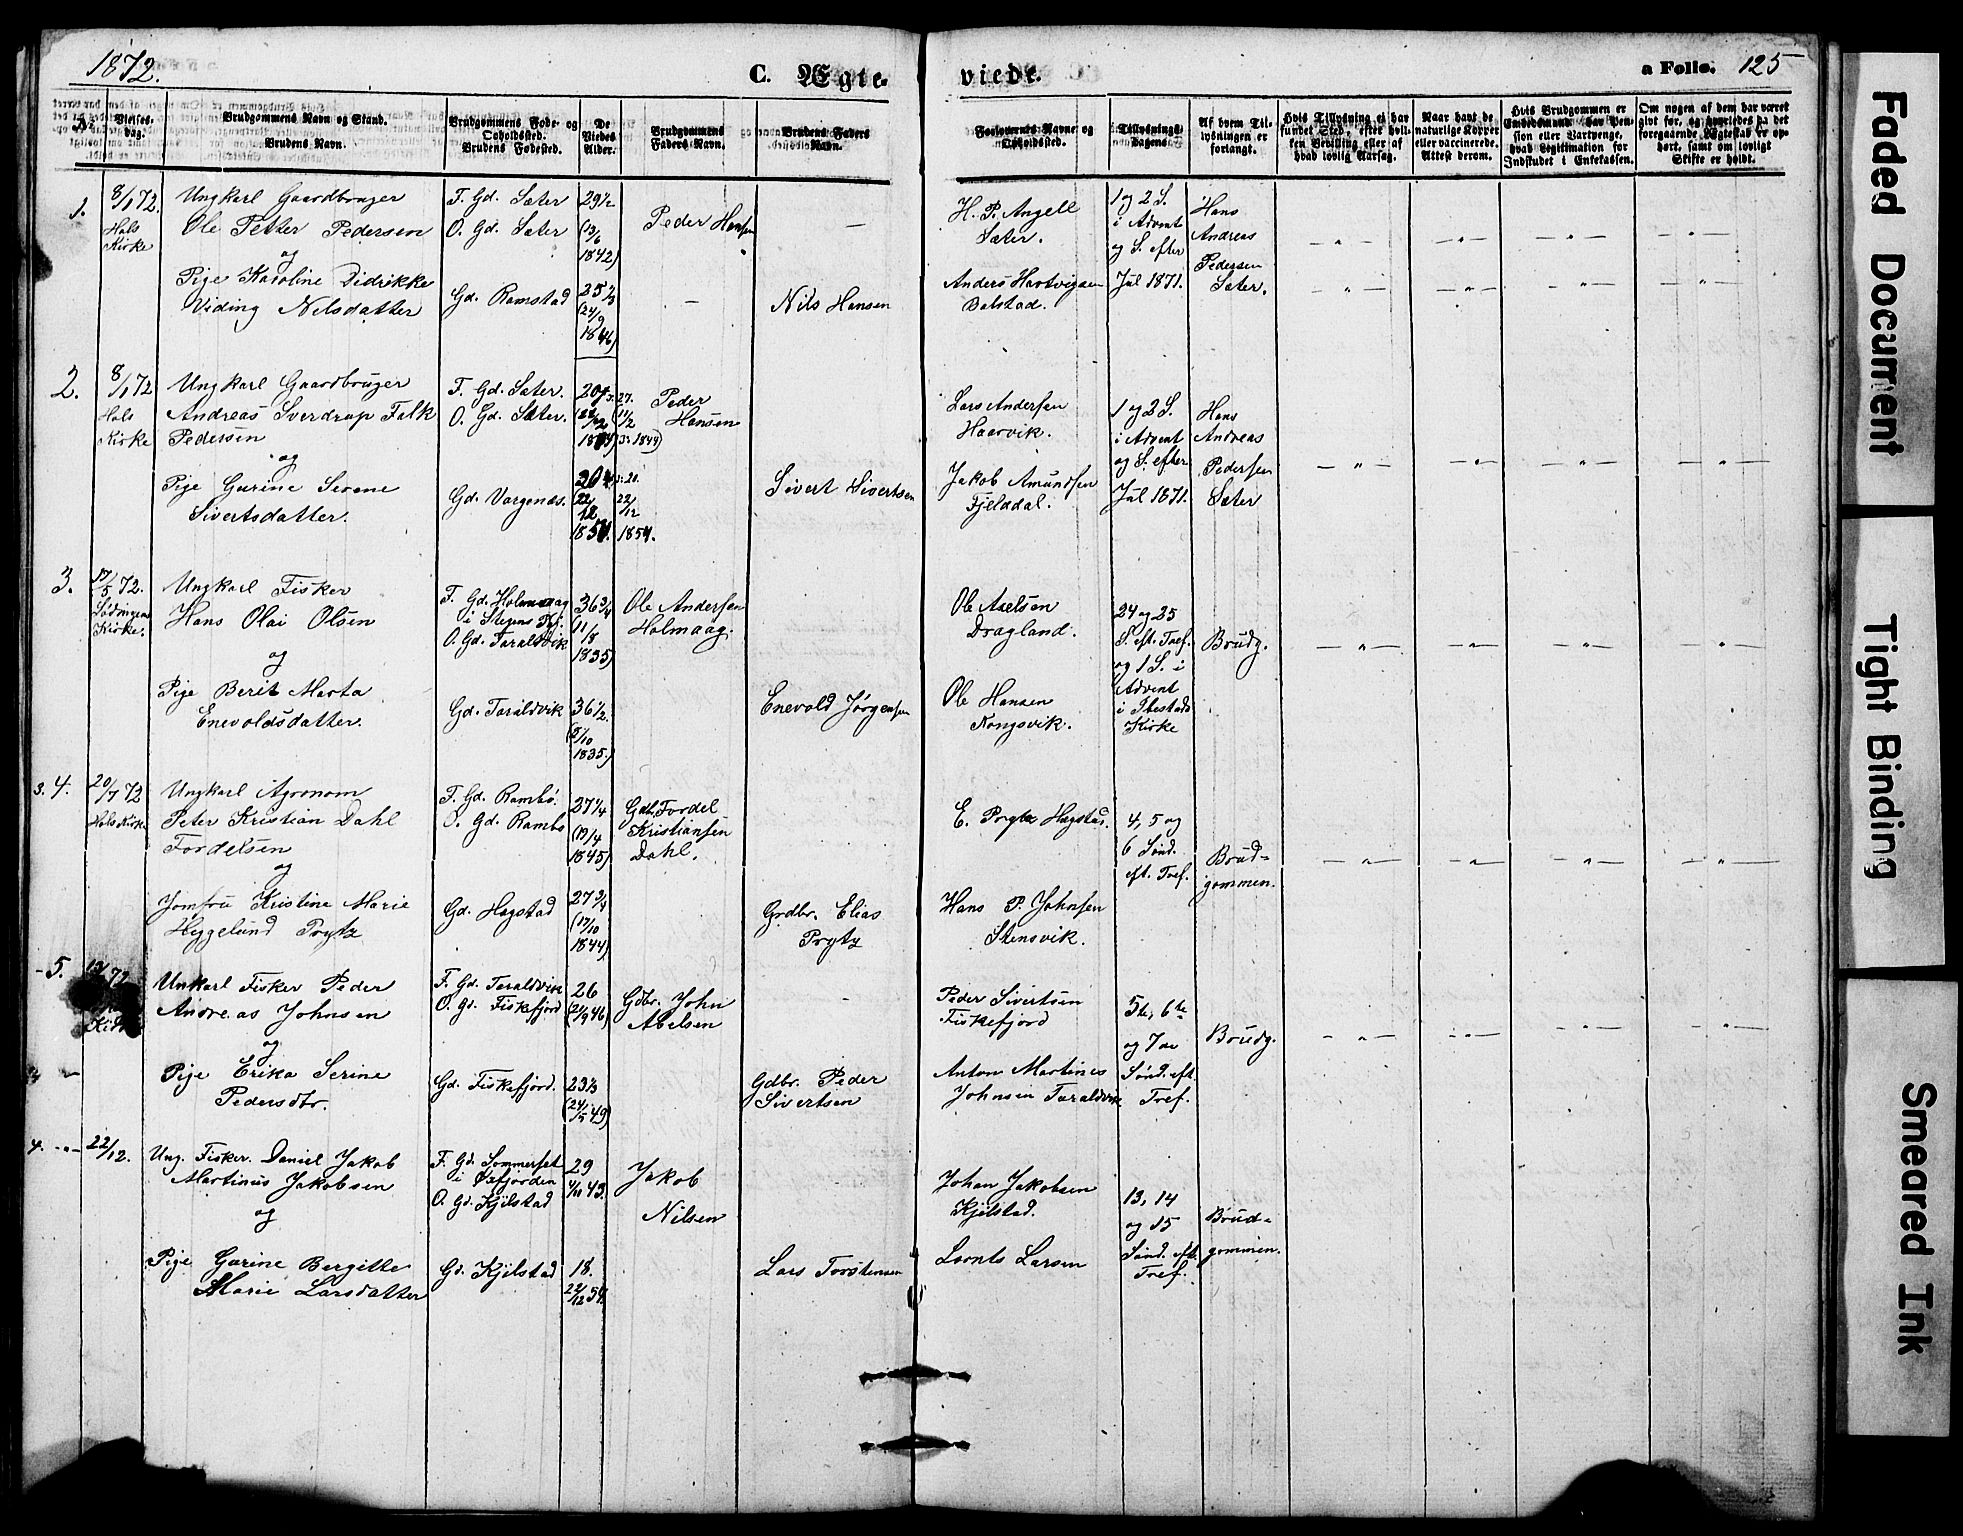 1872.
C. Ægte-
viede.
a Folio. 125
No.
Vielses-
dag.
Brudgommens Navn og Stand.
Brudens Navn.
Brudgommens Føde- og
Opholdssted.
Brudens Fødested.
De
Viedes
Alder.
Brudgommens
Faders Navn.
Brudens Faders
Navn.
Forlovernes Navne og
Opholdssted.
Tillysnings-
Dagene.
Af hvem Til-
lysningen er
forlangt.
Hvis Tillysning ei har
fundet Sted, efter hvil-
ken Bevilling eller af
hvad lovlig Aarsag.
Naar havt de
naturlige Kopper
eller vaccinerede.
Attest derom.
Hvis Brudgommen er
Embedsmand eller har Pen-
sion eller Vartpenge,
hvad Legitimation for
Indskudet i Enkekassen.
Om nogen af dem har været
givt før, og hvorledes da det
foregaaende Ægteskab er op-
hørt, samt om lovligt
Skifte er holdt.
1.
8/1 72.
Hols
Kirke
Ungkarl Gaardbruger
Ole Petter Pedersen
og
Pige Karoline Didrikke
Viding Nilsdatter
F. Gd. Sæter
O. Gd. Sæter
Gd. Ramstad
29 1/2
(13/6
1842)
25 1/3
(24/9
1846)
Peder Hansen
—
—
Nils Hansen
H. P. Angell
Sæter.
Anders Hartvigsen
Balstad.
1 og 2 S.
i Advent
og S. efter
Jul 1871.
Hans
Andreas
Pedersen
Sæter.
2.
8/1 72
Hols
Kirke
Ungkarl Gaardbruger
Andreas Sverdrup Falk
Pedersen
og
Pige Gurine Serene
Sivertsdatter.
F. Gd. Sæter.
O. Gd. Sæter.
Gd. Vargenæs.
27.
(11/2
1844)
20.
22/12
1851.
Peder
Hansen
Sivert Sivertsen
Lars Andersen
Haarvik.
Jakob Amundsen
Fjeldal.
1 og 2 S.
i Advent
og S. efter
Jul 1871.
Hans
Andreas
Pedersen
Sæter
3.
17/5 72.
Lødingens
Kirke.
Ungkarl Fisker
Hans Olai Olsen
og
Pige Berit Marta
Enevoldsdatter.
F. Gd. Holmaag
i Stegens Pgj.
O. Gd. Taraldvik
Gd. Taraldvik
36 3/4
(11/8
1835)
36 1/2.
(5/10
1835.)
Ole Andersen
Holmaag.
Enevold Jørgensen
Ole Axelsen
Dragland.
Ole Hansen
Kongsvik.
24 og 25
S. eft. Tref.
og 1 S. i
Advent
i Ibestads
Kirke
Brudg.
3. 4.
20/7 72
Hols Kirke
Ungkarl Agronom
Peter Kristian Dahl
Fordelsen
og
Jomfru Kristine Marie
Heggelund Prytz
F. Gd. Rambø.
O. Gd. Rambø
Gd. Hagstad
27 1/4
(19/4
1845)
27 3/4
(17/10
1844)
Gdbr. Fordel
Kristiansen
Dahl.
Grdbr. Elias
Prytz
E. Prytz Hagstad.
Hans P. Johnsen
Stensvik.
4, 5 og
6 Sønd.
eft. Tref.
Brud-
gommen.
5.
72
Unkarl Fisker Peder
Andreas Johnsen
og
Pige Erika Serine
Pedersdtr.
F. Gd. Taraldvik
O. Gd. Fiskefjord
Gd. Fiskefjord.
26
(2/9 46)
23 1/3
(24/5 49)
Gdbr. John
Abelsen
Gdbr. Peder
Sivertsen
Peder Sivertsen
Fiskefjord
Anton Martines
Johnsen Taraldvik
5te, 6te
og 7de
Sønd. eft.
Tref.
Brudg.
4.
22/12.
Ung. Fisker. Daniel Jakob
Martinus Jakobsen
og
Pige Garine Bergitte
Marie Larsdatter
F. Gd. Sommerset
i Øxfjorden
O. Gd. Kjelstad
Gd. Kjelstad
29
4/11 43.
18.
22/12 54.
Jakob
Nilsen
Lars Torstensen
Johan Jakobsen
Kjelstad.
Lornts Larsen
13, 14
og 15
Sønd. eft.
Tref.
Brud-
gommen.
Faded Document
Tight Binding
Smeared Ink